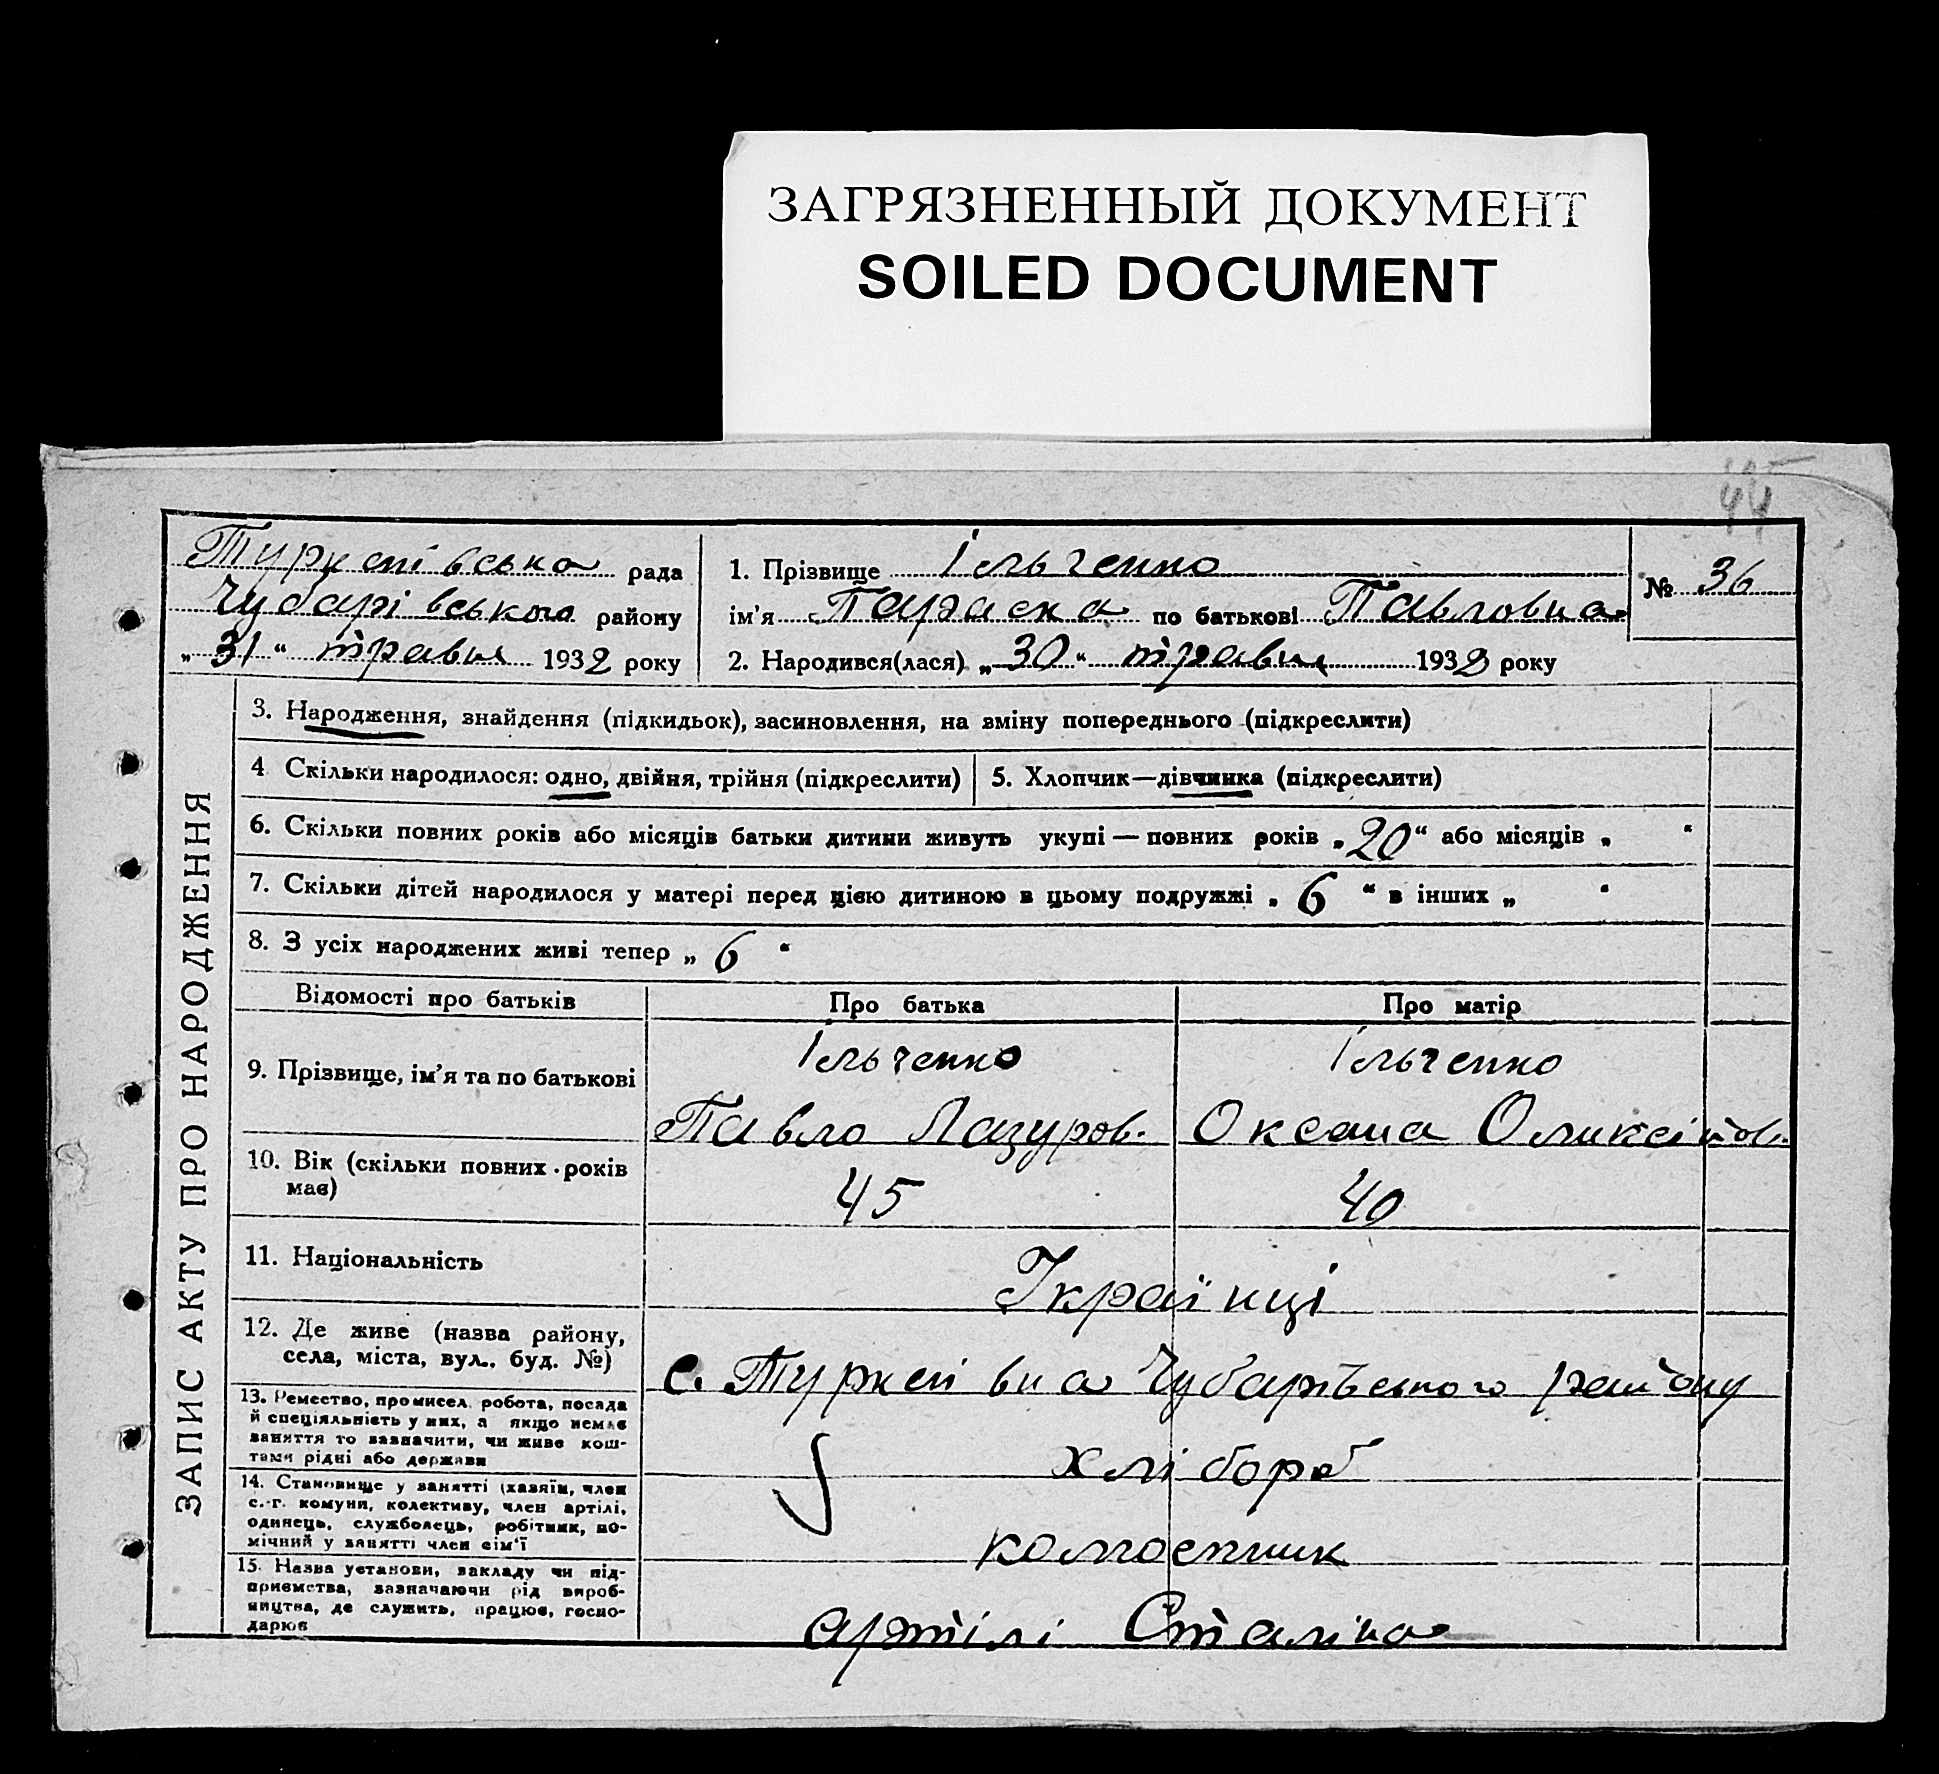 ЗАГРЯЗНЕННЫЙ ДОКУМЕНТ
SOILED DOCUMENT
44
Туркенівська рада
Чубарівського району
„31“ травня 1932 року
1. Прізвище Ільченко
ім'я Параска по батькові Павловна
2. Народився(лася) „30“ травня 1932 року
№ 36
ЗАПИС АКТУ ПРО НАРОДЖЕННЯ
3. Народження, знайдення (підкидьок), засиновлення, на зміну попереднього (підкреслити)
4 Скільки народилося: одно, двійня, трійня (підкреслити)
5. Хлопчик—дівчинка (підкреслити)
6. Скільки повних років або місяців батьки дитини живуть укупі — повних років „20“ або місяців „ “
7. Скільки дітей народилося у матері перед цією дитиною в цьому подружжі „ 6 “ в інших „ “
8. З усіх народжених живі тепер „ 6 “
Відомості про батьків
Про батька
Про матір
9. Прізвище, ім'я та по батькові
Ільченко
Павло Лазуров.
Ільченко
Оксана
10. Вік (скільки повних років
має)
45
40
11. Національність
Ікраїнці
12. Де живе (назва району,
села, міста, вул.. буд. №)
с. Чубарівського району
13. Ремество, промисел, робота, посада
й спеціяльність у них, а якщо немає
заняття то зазначити, чи живе кош-
тами рідні або держави
хлібороб
14. Становище у занятті (хазяїн, член
с.-г. комуни, колективу, член артілі,
одинець, службовець, робітник, по-
мічний у занятті член сім'ї
колгоспник
15. Назва установи, закладу чи під-
приємства, зазначаючи рід вироб-
ництва, де служить, працює, госпо-
дарює
артілі Сталіна